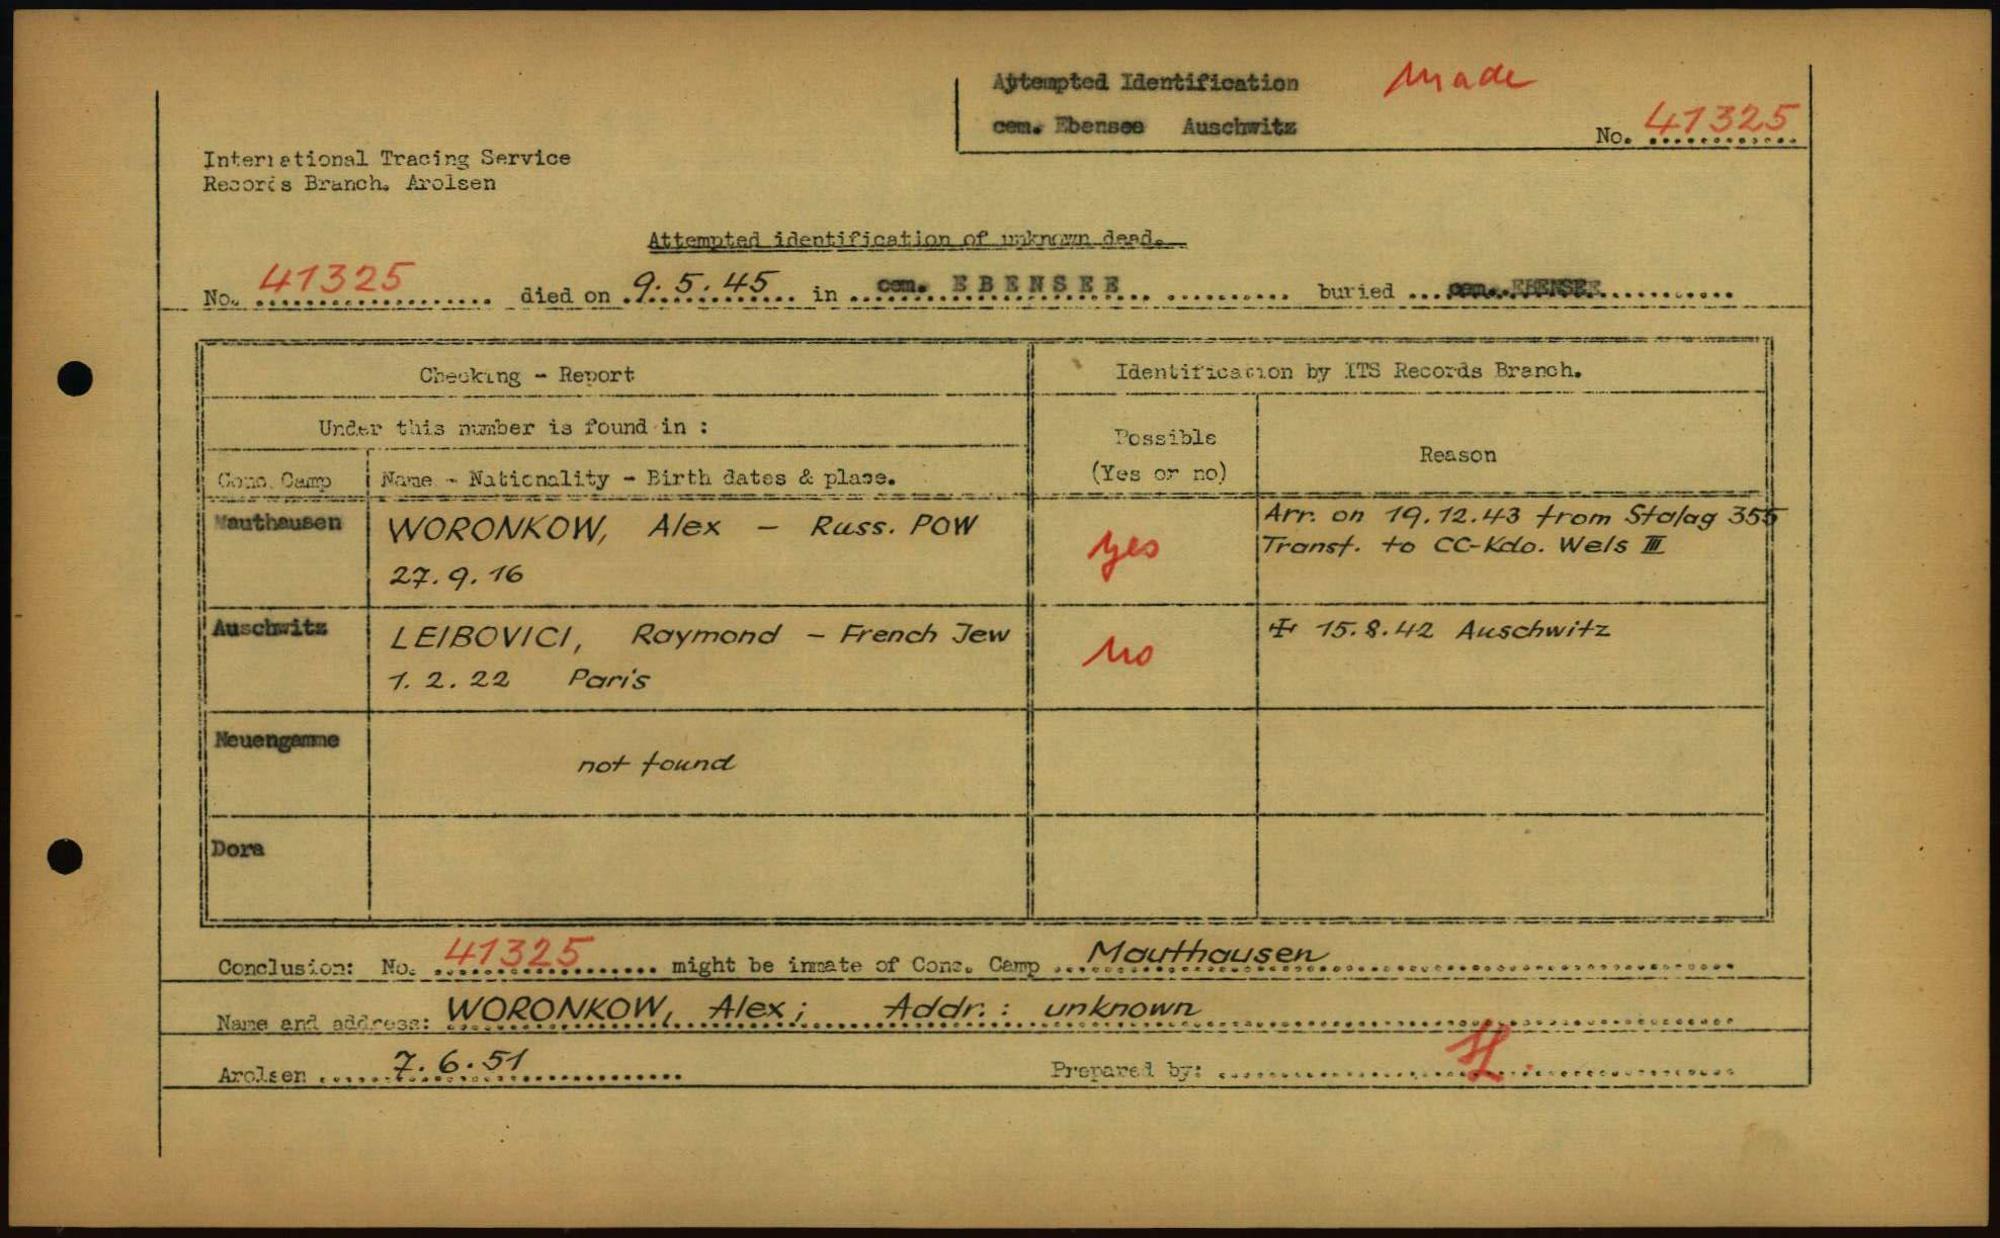 Attempted Identification Made
cem. Ebensee Auschwitz No. 41325
International Tracing Service
Records Branch. Arolsen
Attempted identification of unknown dead.
No. 41325 died on 9.5.45 in cem. EBENSEE buried cem. EBENSEE
Checking - Report
Identification by ITS Records Branch.
Under this number is found in :
Possible
(Yes or no)
Reason
Conc. Camp Name - Nationality - Birth dates & place.
Mauthausen WORONKOW, Alex - Russ. POW
27.9.16
yes
Arr. on 19.12.43 from Stalag 355
Transf. to CC-Kdo. Wels III
Auschwitz LEIBOVICI, Raymond - French Jew
1.2.22 Paris
no
15.8.42 Auschwitz
Neuengamme
not found
Dora
Conclusion: No. 41325 might be inmate of Conc. Camp Mauthausen
Name and address: WORONKOW, Alex; Addr.: unknown
Arolsen 7.6.51 Prepared by: